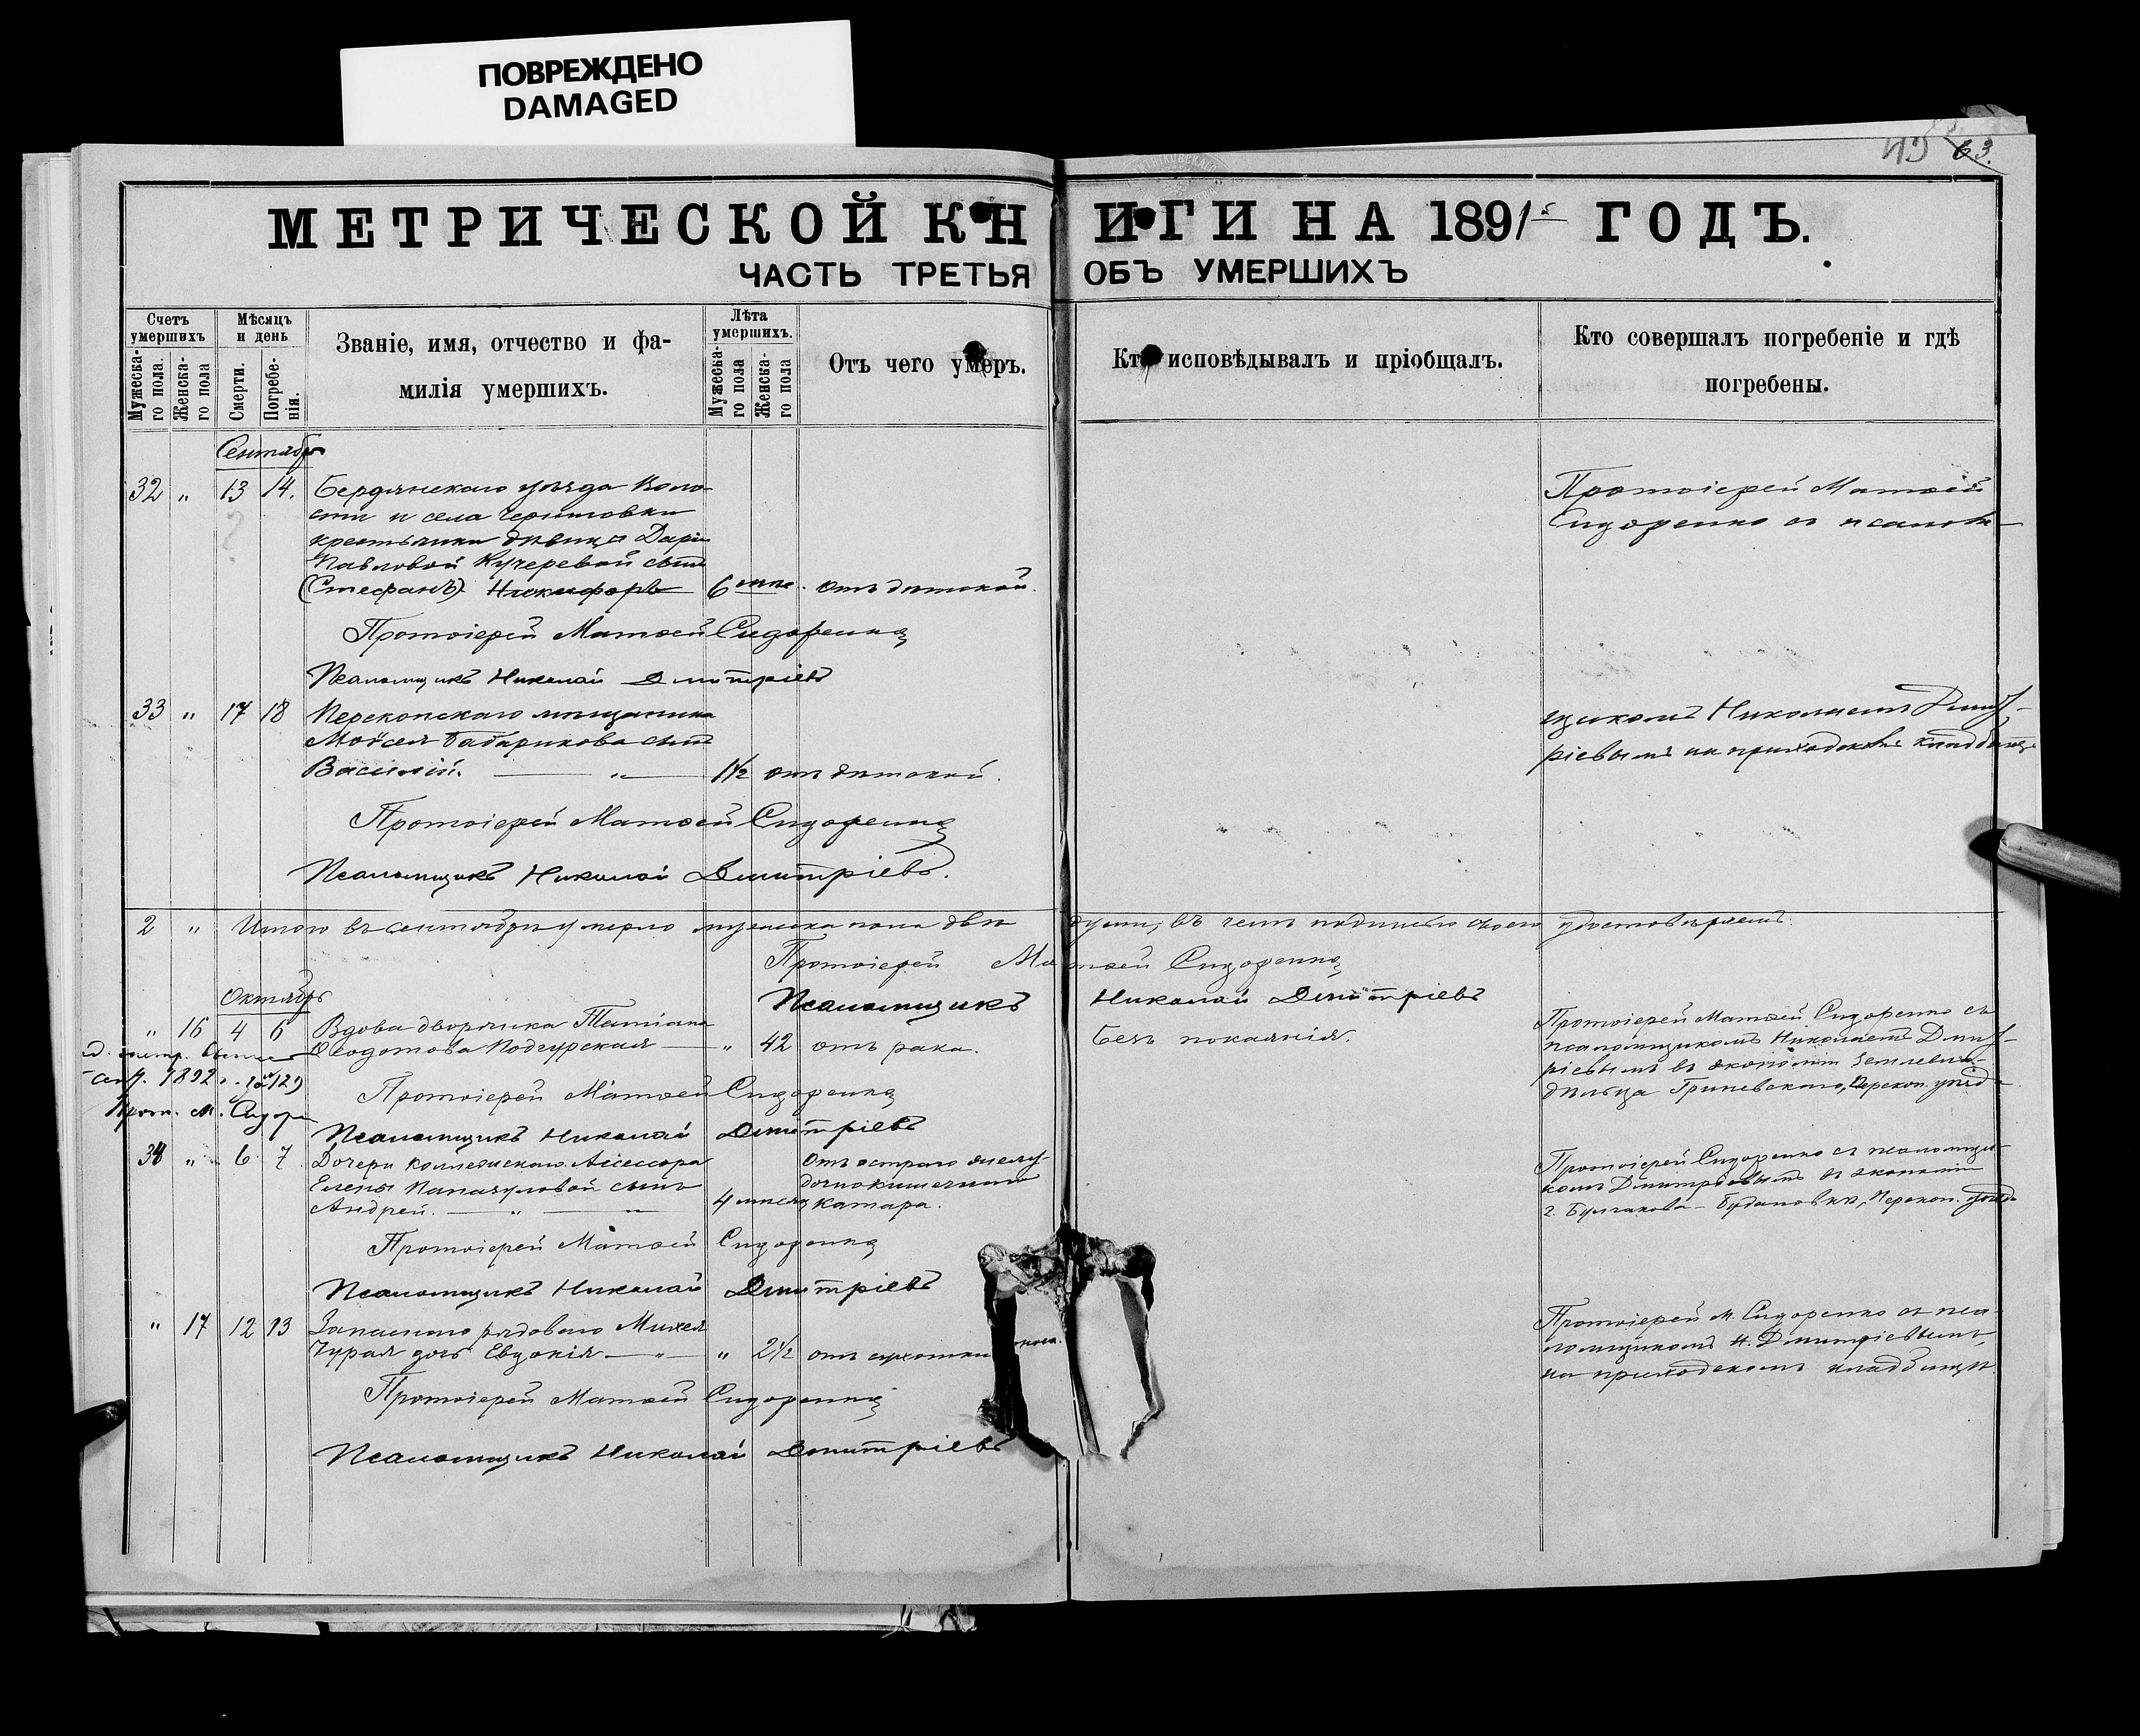 ПОВРЕЖДЕНО
DAMAGED
63.
МЕТРИЧЕСКОЙ КНИГИ НА 1891 ГОДЪ.
ЧАСТЬ ТРЕТЬЯ ОБЪ УМЕРШИХЪ
Счетъ умершихъ
Мужеска-го пола.
Женска-го пола
Мѣсяцъ и день
Смерти.
Погребе-нія.
Званіе, имя, отчество и фа-
милія умершихъ.
Лѣта умершихъ.
Мужеска-го пола
Женска-го пола
Отъ чего умеръ.
Кто исповѣдывалъ и пріобщалъ.
Кто совершалъ погребеніе и гдѣ
погребены.
Сентябрь
32 " 13 14. Бердянскаго уѣзда Воло-
сти и села Черниговки
крестьянки дѣвицы Даріи
Павловой Кучеревой сынъ
(Стефанъ) Никифоръ 6 отъ дѣтской.
Протоіерей Матѳей
Сидоренко съ псалом-
Протоіерей Матѳей Сидоренко
Псаломщикъ Николай Дмитріевъ
33 " 17 18 Перекопскаго мѣщанина
Моѵсея сынъ
Василій. " 1½ отъ дѣтской.
щикомъ Николаемъ Дмит-
ріевымъ на приходскомъ кладбищѣ
Протоіерей Матѳей Сидоренко
Псаломщикъ Николай Дмитріевъ.
2 " Итого въ сентябрѣ умерло мужеска пола двѣ души, въ чемъ подписью своею удостовѣряемъ.
Протоіерей Матѳей Сидоренко
Псаломщикъ Николай Дмитріевъ
Октябрь
" 16 4 6 Вдова дворянка Татіана
Ѳеодотова Подгурская " 42 отъ рака. Безъ покаянія.
Протоіерей Матѳей Сидоренко съ
псаломщикомъ Николаемъ Дмит-
ріевымъ въ экономіи землевла-
дѣльца Гриневскаго, Перекоп. уѣзд
1892 129
Прот. М. Сидоре
Протоіерей Матѳей Сидоренко
Псаломщикъ Николай Дмитріевъ
34 " 6 7 Дочери Коллежскаго Ассесора
Елены сынъ
Андрей. " " 4 мѣсяц
Отъ остраго желу-
дочнокишечнаго
катара.
Протоіерей Сидоренко съ псаломщи-
комъ Дмитріевымъ въ экономіи
г. Булгакова – Будановкѣ, Перекоп. уѣзда
Протоіерей Матѳей Сидоренко
Псаломщикъ Николай Дмитріевъ
" 17 12 13 Запаснаго рядоваго Михея
Чурая дочь Евдокія " " 2½ отъ сухотки
Протоіерей М. Сидоренко съ пса-
ломщикомъ Н. Дмитріевымъ,
на приходскомъ кладбищѣ.
Протоіерей Матѳей Сидоренко
Псаломщикъ Николай Дмитріевъ